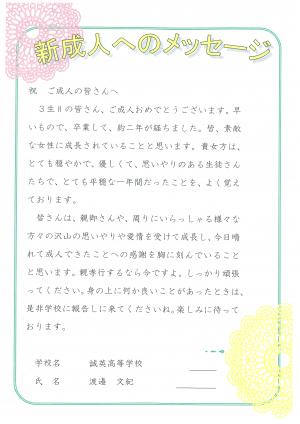 新成人へのメッセージ
祝　ご成人の皆さんへ
３生Ⅱの皆さん、ご成人おめでとうございます。早
いもので、卒業して、約二年が経ちました。皆、素敵
な女性に成長されていることと思います。貴女方は、
とても穏やかで、優しくて、思いやりのある生徒さん
たちで、とても平穏な一年間だったことを、よく覚え
ております。
皆さんは、親御さんや、周りにいらっしゃる様々な
方々の沢山の思いやりや愛情を受けて成長し、今日晴
れて成人できたことへの感謝を胸に刻んでいること
と思います。親孝行するなら今ですよ。しっかり頑張
ってください。身の上に何か良いことがあったときは、
是非学校に報告しに来てくださいね。楽しみに待って
おります。
学校名　誠英高等学校
氏　名　渡邉　文紀